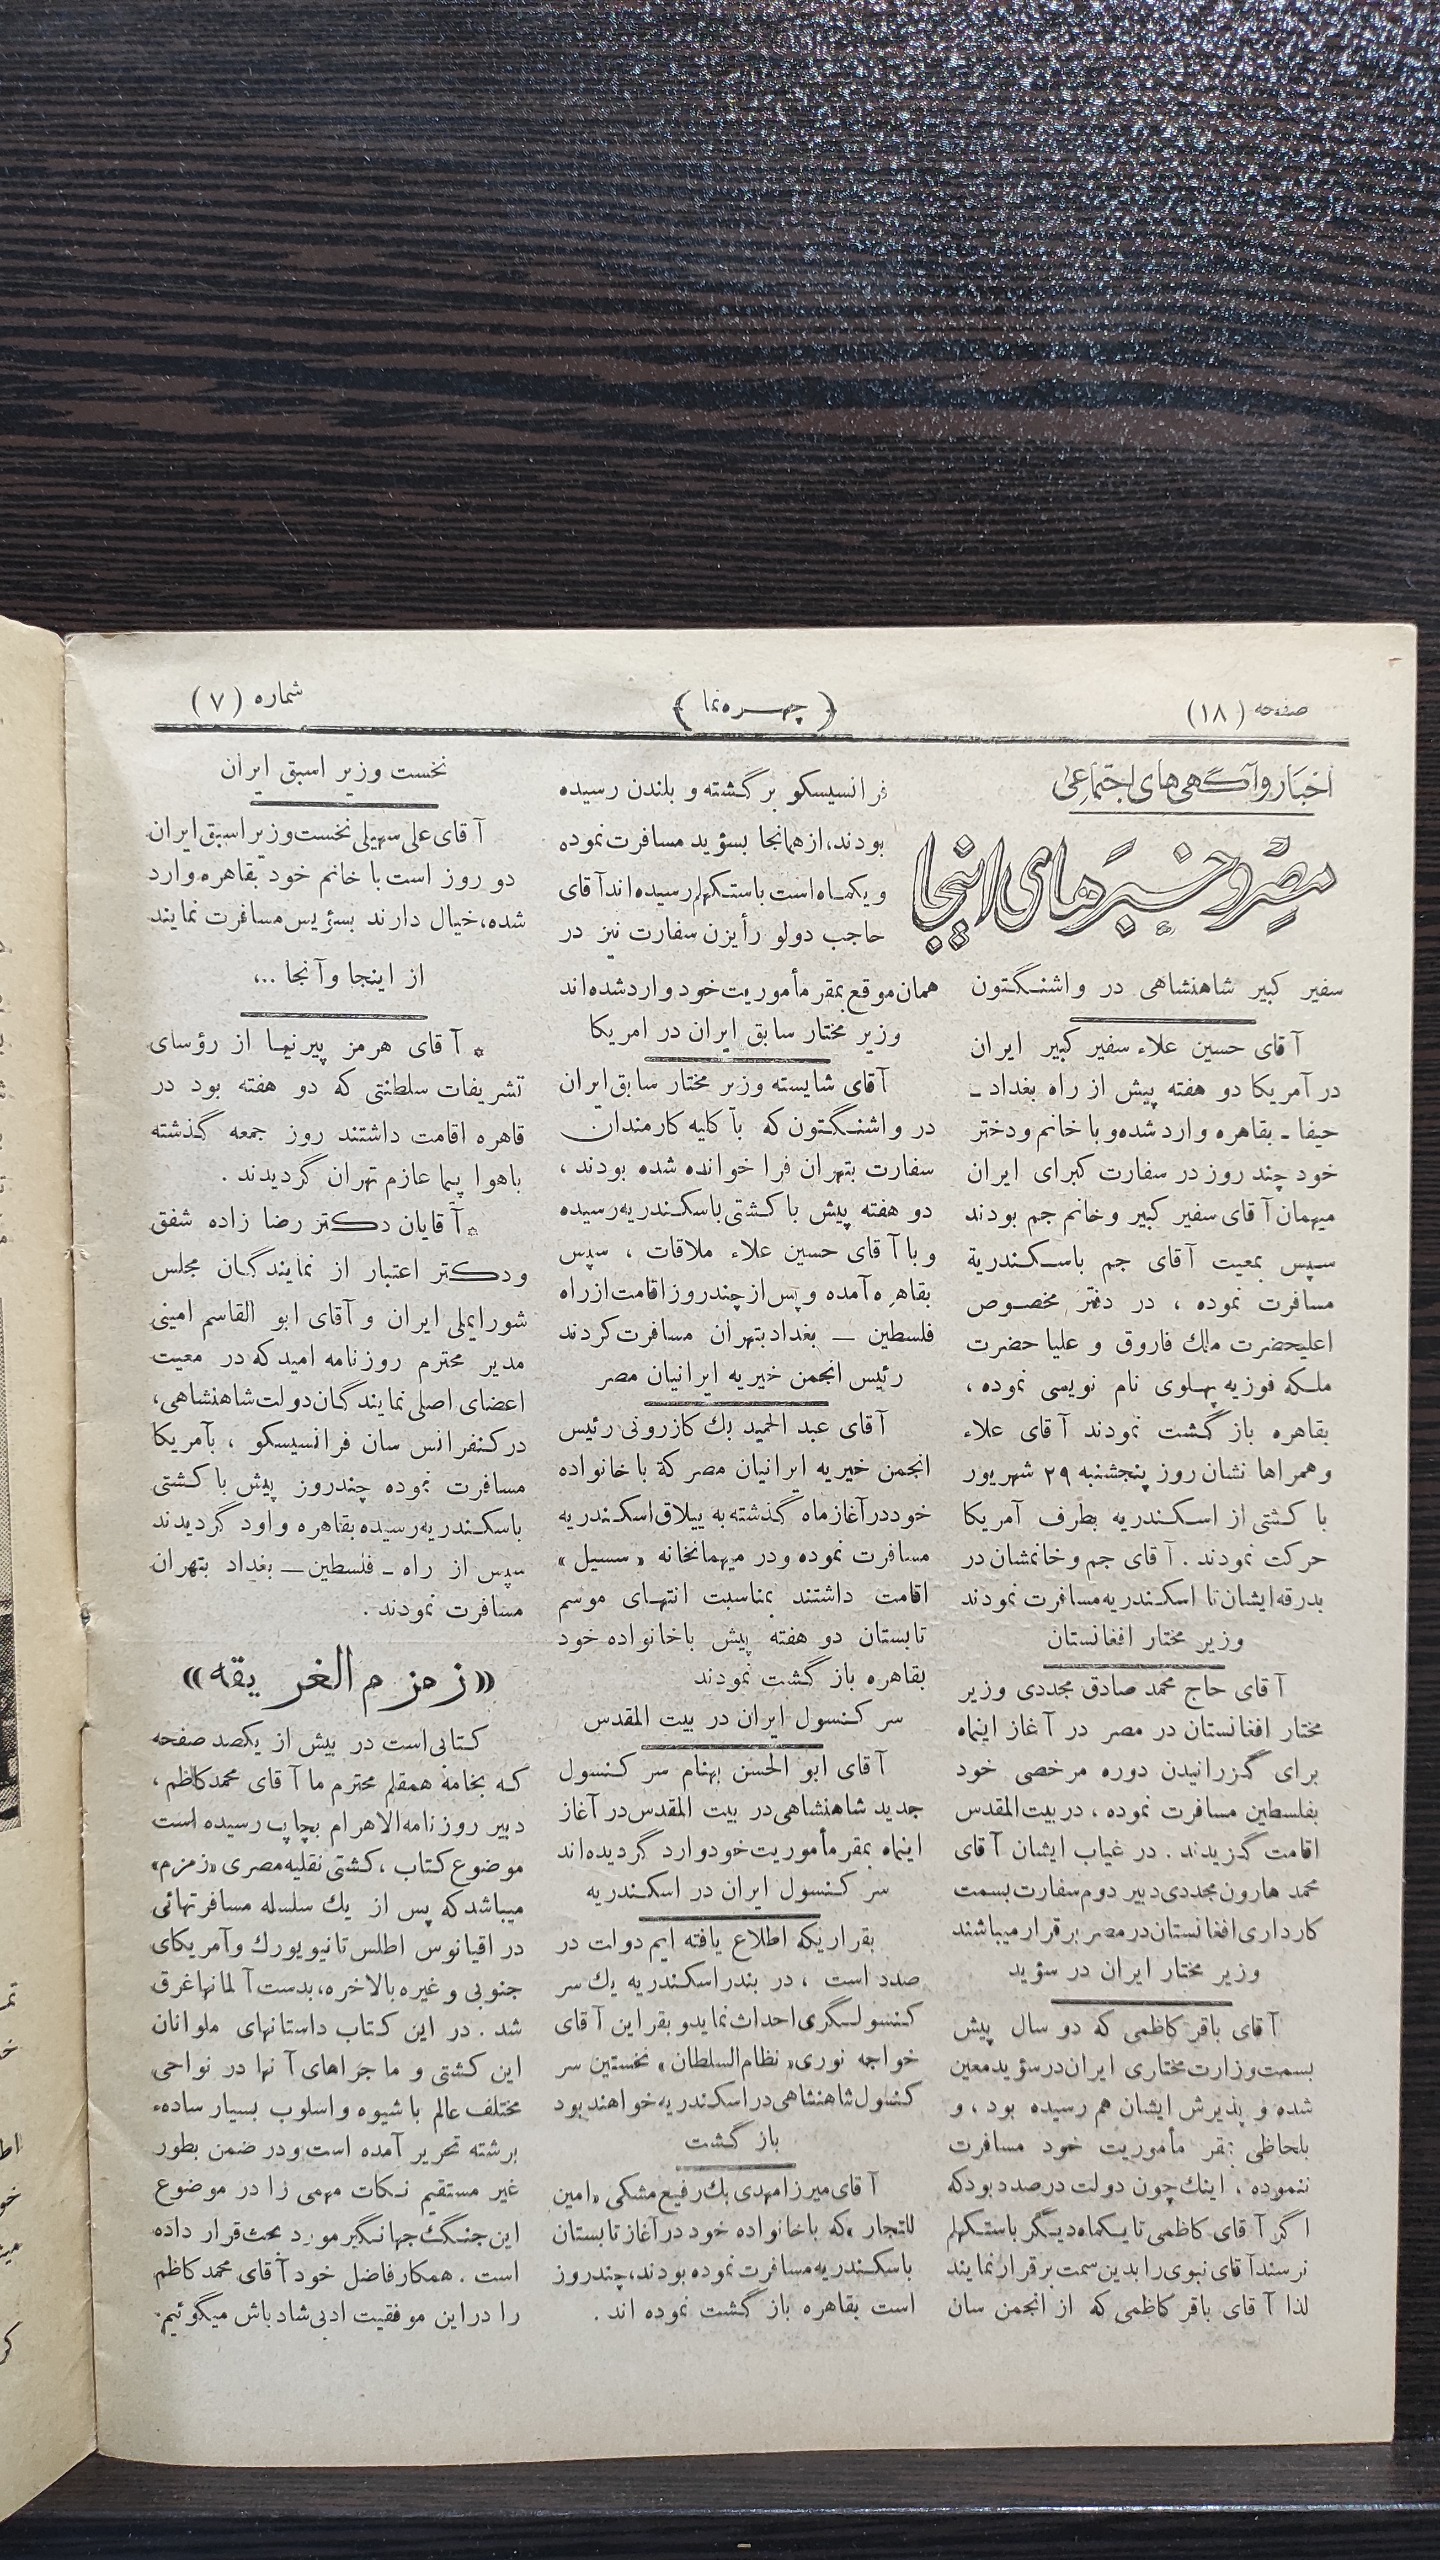 صفحه (۱۸)
﴿ چهره‌نما ﴾
شماره (۷)
اخبار و آگهی های اجتماعی
مصر و خبرهای اینجا
سفیر کبیر شاهنشاهی در واشنگتون
آقای حسین علاء سفیر کبیر ایران
در آمریکا دو هفته پیش از راه بغداد ـ
حیفا ـ بقاهره وارد شده و با خانم و دختر
خود چند روز در سفارت کبرای ایران
میهمان آقای سفیر کبیر و خانم جم بودند
سپس بمعیت آقای جم باسکندریة
مسافرت نموده ، در دفتر مخصوص
اعلیحضرت ملك فاروق و علیا حضرت
ملکه فوزیه پهلوی نام نویسی نموده ،
بقاهره باز گشت نمودند آقای علاء
و همراها نشان روز پنجشنبه ۲۹ شهریور
با کشتی از اسکندریه بطرف آمریکا
حرکت نمودند . آقای جم و خانمشان در
بدرقه ایشان تا اسکندریه مسافرت نمودند
وزیر مختار افغانستان
آقای حاج محمد صادق مجددی وزیر
مختار افغانستان در مصر در آغاز اینماه
برای گزرانیدن دوره مرخصی خود
بفلسطین مسافرت نموده ، در بیت المقدس
اقامت گزیدند . در غیاب ایشان آقای
محمد هارون مجددی دبیر دوم سفارت بسمت
کارداری افغانستان در مصر برقرار میباشند
وزیر مختار ایران در سؤید
آقای باقر کاظمی که دو سال پیش
بسمت وزارت مختاری ایران در سؤید معین
شده و پذیرش ایشان هم رسیده بود ، و
بلحاظی بمقر مأموریت خود مسافرت
ننموده ، اینك چون دولت درصدد بود که
اگر آقای کاظمی تا یکماه دیگر باستکهلم
نرسند آقای نبوی را بدین سمت برقرار نمایند
لذا آقای باقر کاظمی که از انجمن سان
فرانسیسکو برگشته و بلندن رسیده
بودند، از همانجا بسؤید مسافرت نموده
و یکماه است باستکهلم رسیده اند آقای
حاجب دولو رأیزن سفارت نیز در
همان موقع بمقر مأموریت خود وارد شده اند
وزیر مختار سابق ایران در امریکا
آقای شایسته وزیر مختار سابق ایران
در واشنگتون که بآ کلیه کارمندان
سفارت بتهران فرا خوانده شده بودند ،
دو هفته پیش با کشتی باسکندریه رسیده
و با آقای حسین علاء ملاقات ، سپس
بقاهره آمده و پس از چند روز اقامت از راه
فلسطین ــ بغداد بتهران مسافرت کردند
رئیس انجمن خیریه ایرانیان مصر
آقای عبد الحمید بك کازرونی رئیس
انجمن خیریه ایرانیان مصر کة با خانواده
خود در آغاز ماه گذشته به ییلاق اسکندریه
مسافرت نموده و در میهمانخانه «سسیل»
اقامت داشتند بمناسبت انتهای موسم
تابستان دو هفته پیش با خانواده خود
بقاهره باز گشت نمودند
سر کنسول ایران در بیت المقدس
آقای ابو الحسن بهنام سر کنسول
جدید شاهنشاهی در بیت المقدس در آغاز
اینماه بمقر مأموریت خود وارد گردیده اند
سر کنسول ایران در اسکندریه
بقراریکه اطلاع یافته ایم دولت در
صدد است ، در بندر اسکندریه یك سر
کنسولگری احداث نماید و بقر این آقای
خواجه نوری « نظام السلطان » نخستین سر
کنسول شاهنشاهی در اسکندریه خواهند بود
باز گشت
آقای میرزا مهدی بك رفیع مشکی « امین
للتجار » که با خانواده خود در آغاز تابستان
باسکندریه مسافرت نموده بودند، چند روز
است بقاهره باز گشت نموده اند .
نخست وزیر اسبق ایران
آقای علی سهیلی نخست وزیر اسبق ایران
دو روز است با خانم خود بقاهره وارد
شده، خیال دارند بسؤیس مسافرت نمایند
از اینجا و آنجا ...
* آقای هرمز پیرنیا از رؤسای
تشریفات سلطنتی که دو هفته بود در
قاهره اقامت داشتند روز جمعه گذشته
باهوا پیما عازم تهران گردیدند .
* آقایان دکتر رضا زاده شفق
و دکتر اعتبار از نمایندگان مجلس
شورایملی ایران و آقای ابو القاسم امینی
مدیر محترم روزنامه امید که در معیت
اعضای اصلی نمایندگان دولت شاهنشاهی،
در کنفرانس سان فرانسیسکو ، بآمریکا
مسافرت نموده چند روز پیش با کشتی
باسکندریه رسیده بقاهره واود گردیدند
سپس از راه ـ فلسطین ــ بغداد بتهران
مسافرت نمودند .
«زمزم الغریقه»
کتابی است در بیش از یکصد صفحه
که بخامهٔ همقلم محترم ما آقای محمد کاظم ،
دبیر روزنامه الاهرام بچاپ رسیده است
موضوع کتاب ، کشتی نقلیه مصری «زمزم»
میباشد که پس از یك سلسله مسافرتهائی
در اقیانوس اطلس تا نیویورك و آمریکای
جنوبی و غیره بالاخره، بدست آلمانها غرق
شد . در این کتاب داستانهای ملوانان
این کشتی و ماجراهای آنها در نواحی
مختلف عالم با شیوه و اسلوب بسیار ساده‌ء
برشته تحریر آمده است و در ضمن بطور
غیر مستقیم نکات مهمی را در موضوع
این جنگ جهانگیر مورد بحث قرار داده
است . همکار فاضل خود آقای محمد کاظم
را در این موفقیت ادبی شادباش میگوئیم.